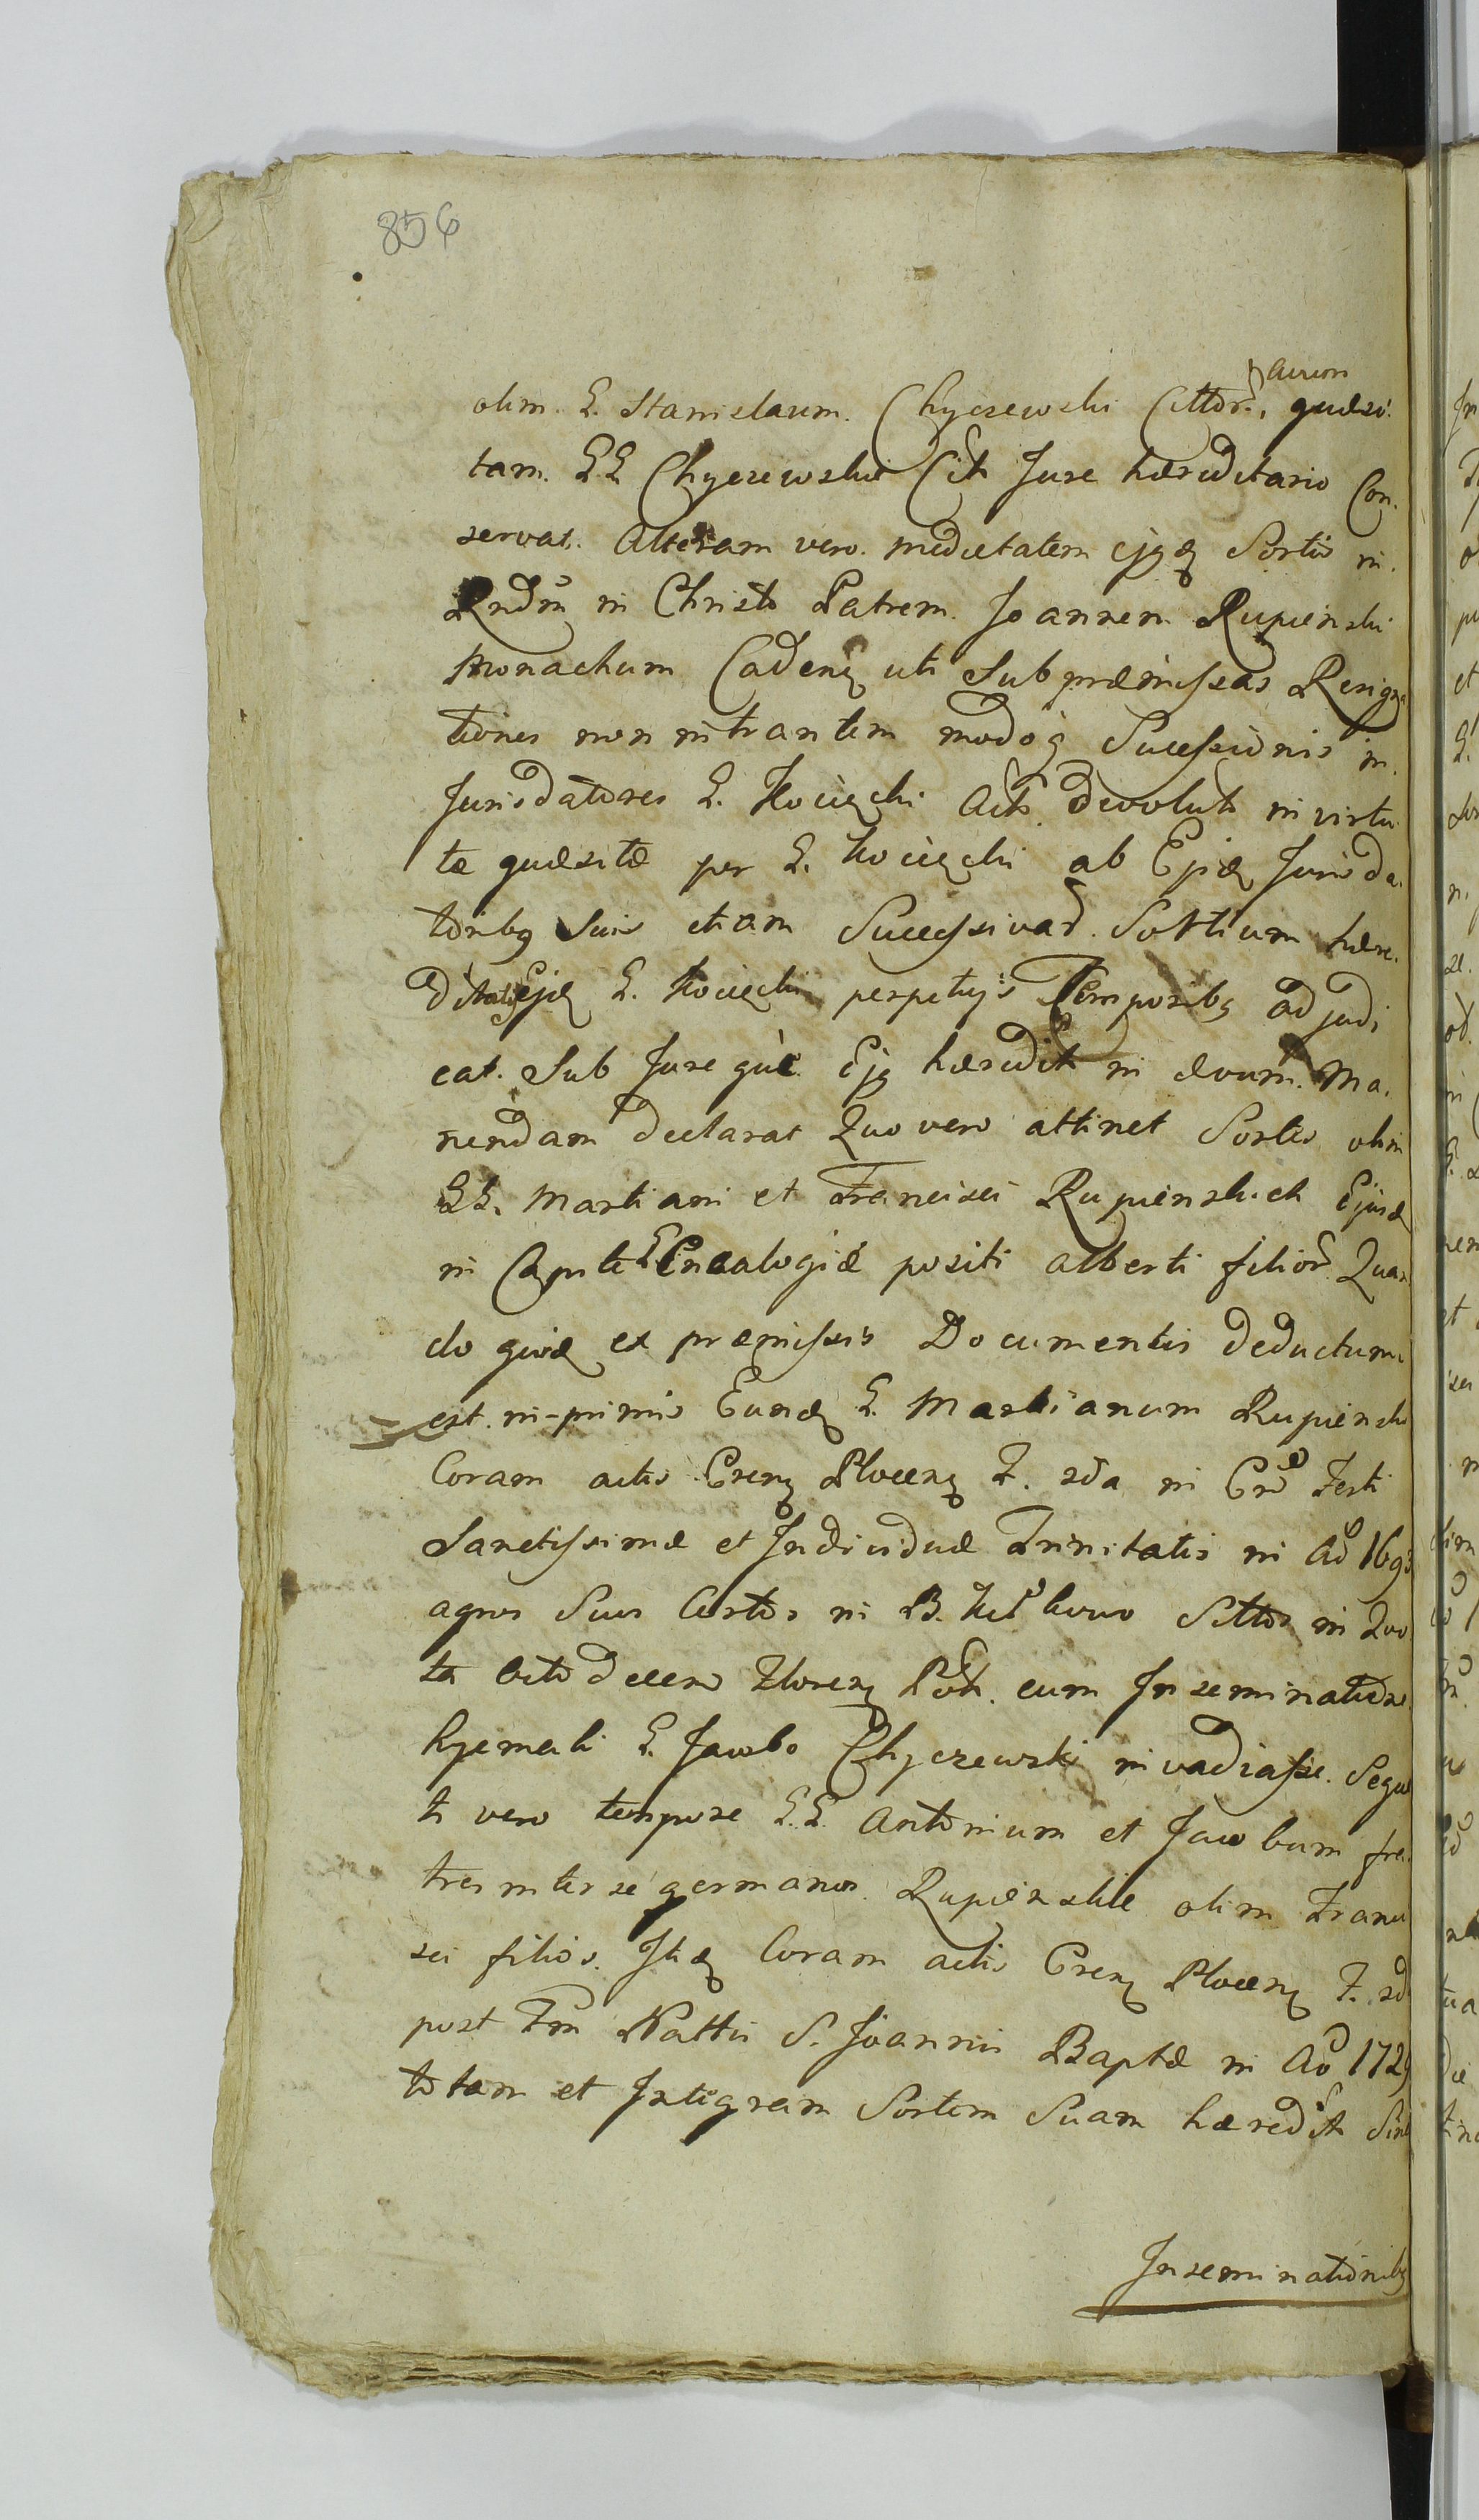 856
avum
olim. G. Stanislaum. Chyczewski Cittor., quæsi-
tam. GG Chyczewskie Citt Jure hæreditario Con-
servat. Alteram vero. medietatem ejqd Sortis in.
Rndm in Christo Patrem. Joannem. Rupienski
Monachum Cadenq uti Sub præmissas Resigna
tiones non intrantem modoq Sucessionis in.
Jurisdatores G. Kocięcki Act. devolut. in virtu-
te quæsitæ per G. Kocięcki ab Ejsd Jurisda-
toribq Suis etiam Sucessivar. Sortium hære-
ditatis Ejsd G. Kocięcki perpetujs Temporibq adjudi
cat. Sub Jure quæ Ejq hæredit in ævum. Ma-
nendam declarat Quo vero attinet Sortes olim
GG. Martiani et Francisci Rupienskich Ejusd
in Capite Genealogiæ positi Alberti filior. Quan-
do quid ex præmissis Documentis deductum
est. in-primis Eund G. Martianum Rupienski
Coram actis Crenq Plocenq F. 2da in Cro Festi
Sanctissimæ et Individuæ Trinitatis in Ao 1693
agros Suos Certos in B. Sittos in Quo
ta Octodecem Florenq Pol. cum Inseminatione
hyemali G. Jacobo Chyczewski invadiasse. Sequen
ti vero tempore G.G. Antonium et Jacobum fra-
tres inter se germanos. Rupienskie olim Franci
sci filios. Itid Coram actis Crenq Plocenq F. 2d
post Fm Nattis S. Joannis Baptæ in Ao 1729
totam et Integram Sortem Suam hæredit Sine
Inseminationibq